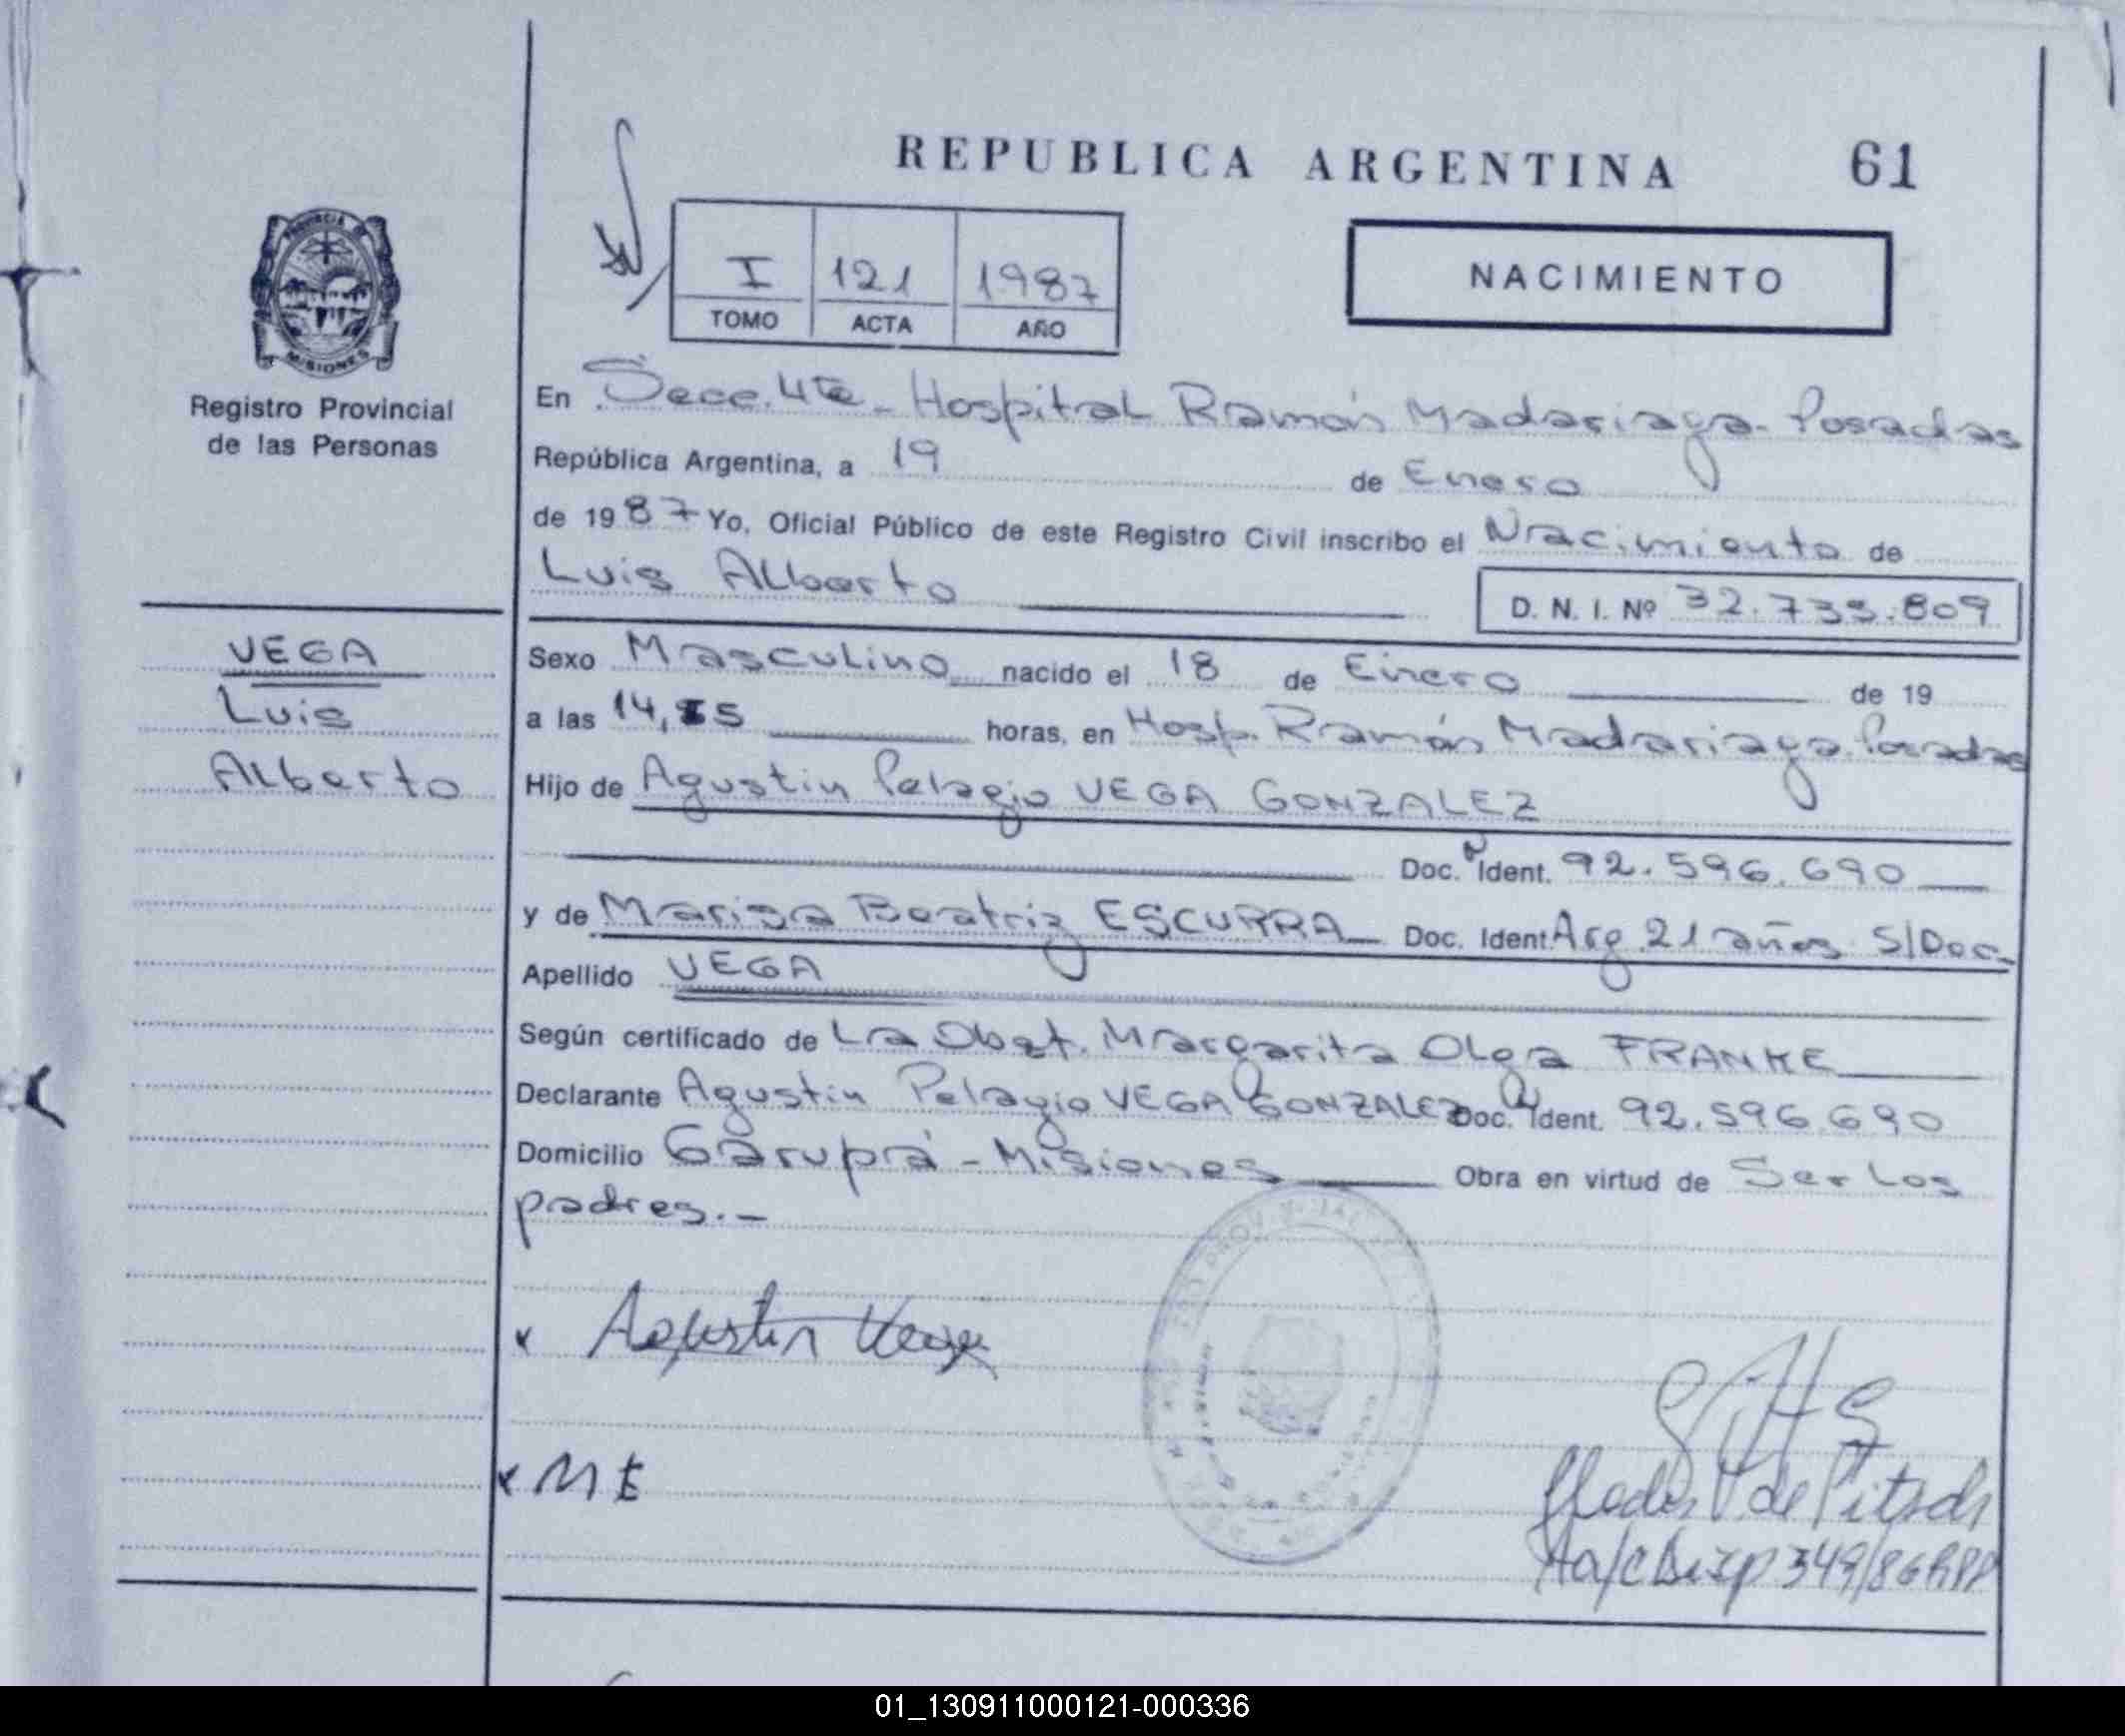 REPUBLICA ARGENTINA 61
PROVINCIA DE
MISIONES
Registro Provincial
de las Personas
I 121 1987
TOMO ACTA AÑO
NACIMIENTO
En Secc. 4ta - Hospital Ramón Madariaga - Posadas
República Argentina, a 19 de Enero
de 1987 Yo, Oficial Público de este Registro Civil inscribo el Nacimiento de
Luis Alberto
D. N. I. Nº 32.735.809
VEGA
Luis
Alberto
Sexo Masculino nacido el 18 de Enero de 19
a las 14,55 horas, en Hosp. Ramón Madariaga. Posadas
Hijo de Agustin Pelagio VEGA GONZALEZ
Doc. Ident. 92.596.690
y de Marisa Beatriz ESCURRA Doc. Ident. Arg. 21 años S/Doc.
Apellido VEGA
Según certificado de La Obst. Margarita Olga FRANKE
Declarante Agustin Pelagio VEGA GONZALEZ Doc. Ident. 92.596.690
Domicilio Garupá - Misiones Obra en virtud de Ser Los
padres.-
x Agustin Vega
x M E
V. de Pitsch
349/86
01_130911000121-000336